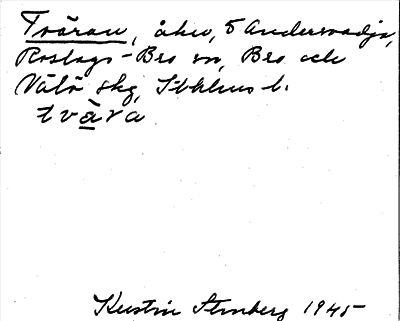 Tväran, åker, S Andersvadja,
Roslags-Bro sn, Bro och
Vätö skg, Sthlms l.
tvä̀ra
Kerstin Stenberg 1945